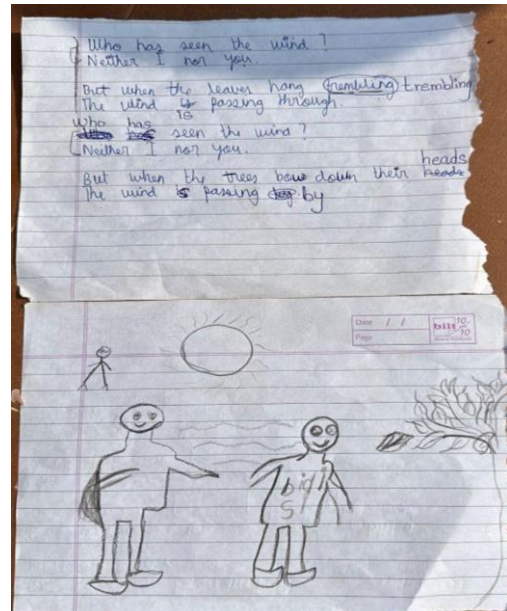 Who has seen the wind?
Neither I nor you.
But when the leaves hang trembling trembling
The wind is passing through.
is
who has
seen the wind?
Neither I nor you.
heads
But when the trees bow down their heads
The wind is passing by
Date / /
Page
big
S